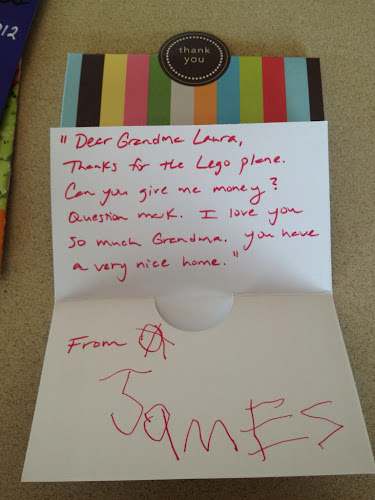 912
thank
you
"Dear Grandma Laura,
Thanks for the Lego plane.
Can you give me money?
Question mark. I love you
so much Grandma. you have
a very nice home."
From
JamES